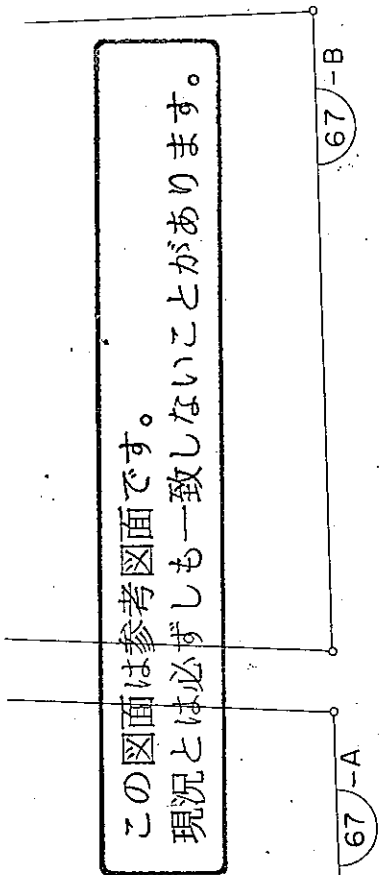 この図面は参考図面です。
現況とは必ずしも一致しないことがあります。
67-A
67-B